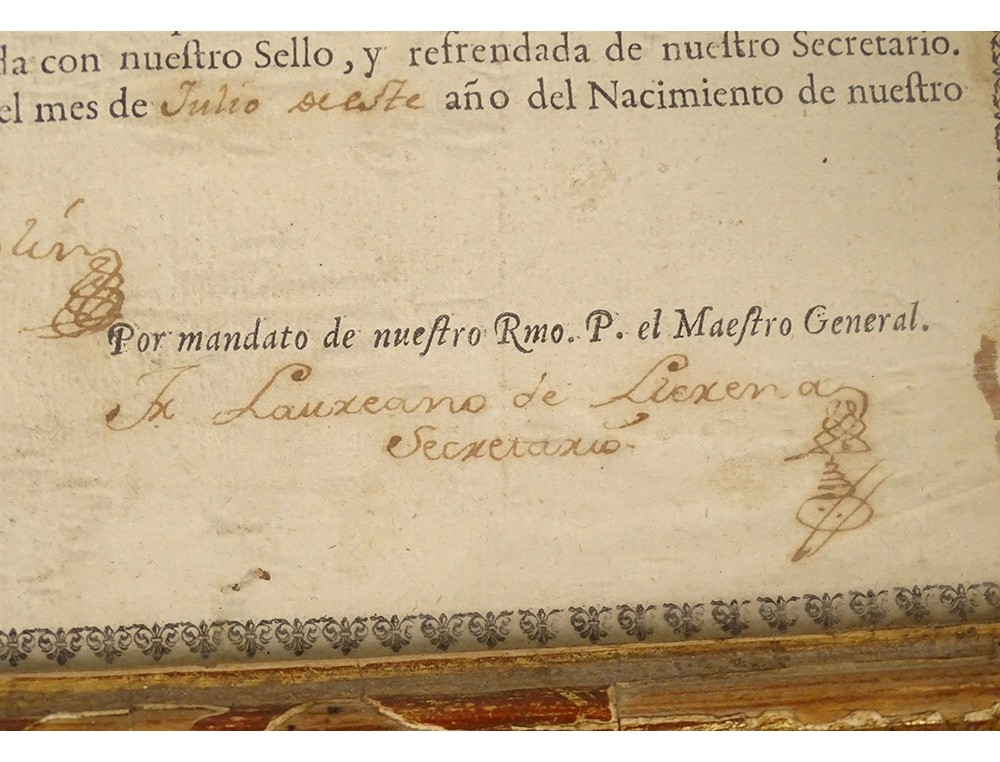 da con nueſtro Sello, y refrendada de nueſtro Secretario.
el mes de Julio de este año del Nacimiento de nueſtro
Por mandato de nueſtro Rmo. P. el Maeſtro General.
Fr Laureano de Llerena
Secretario